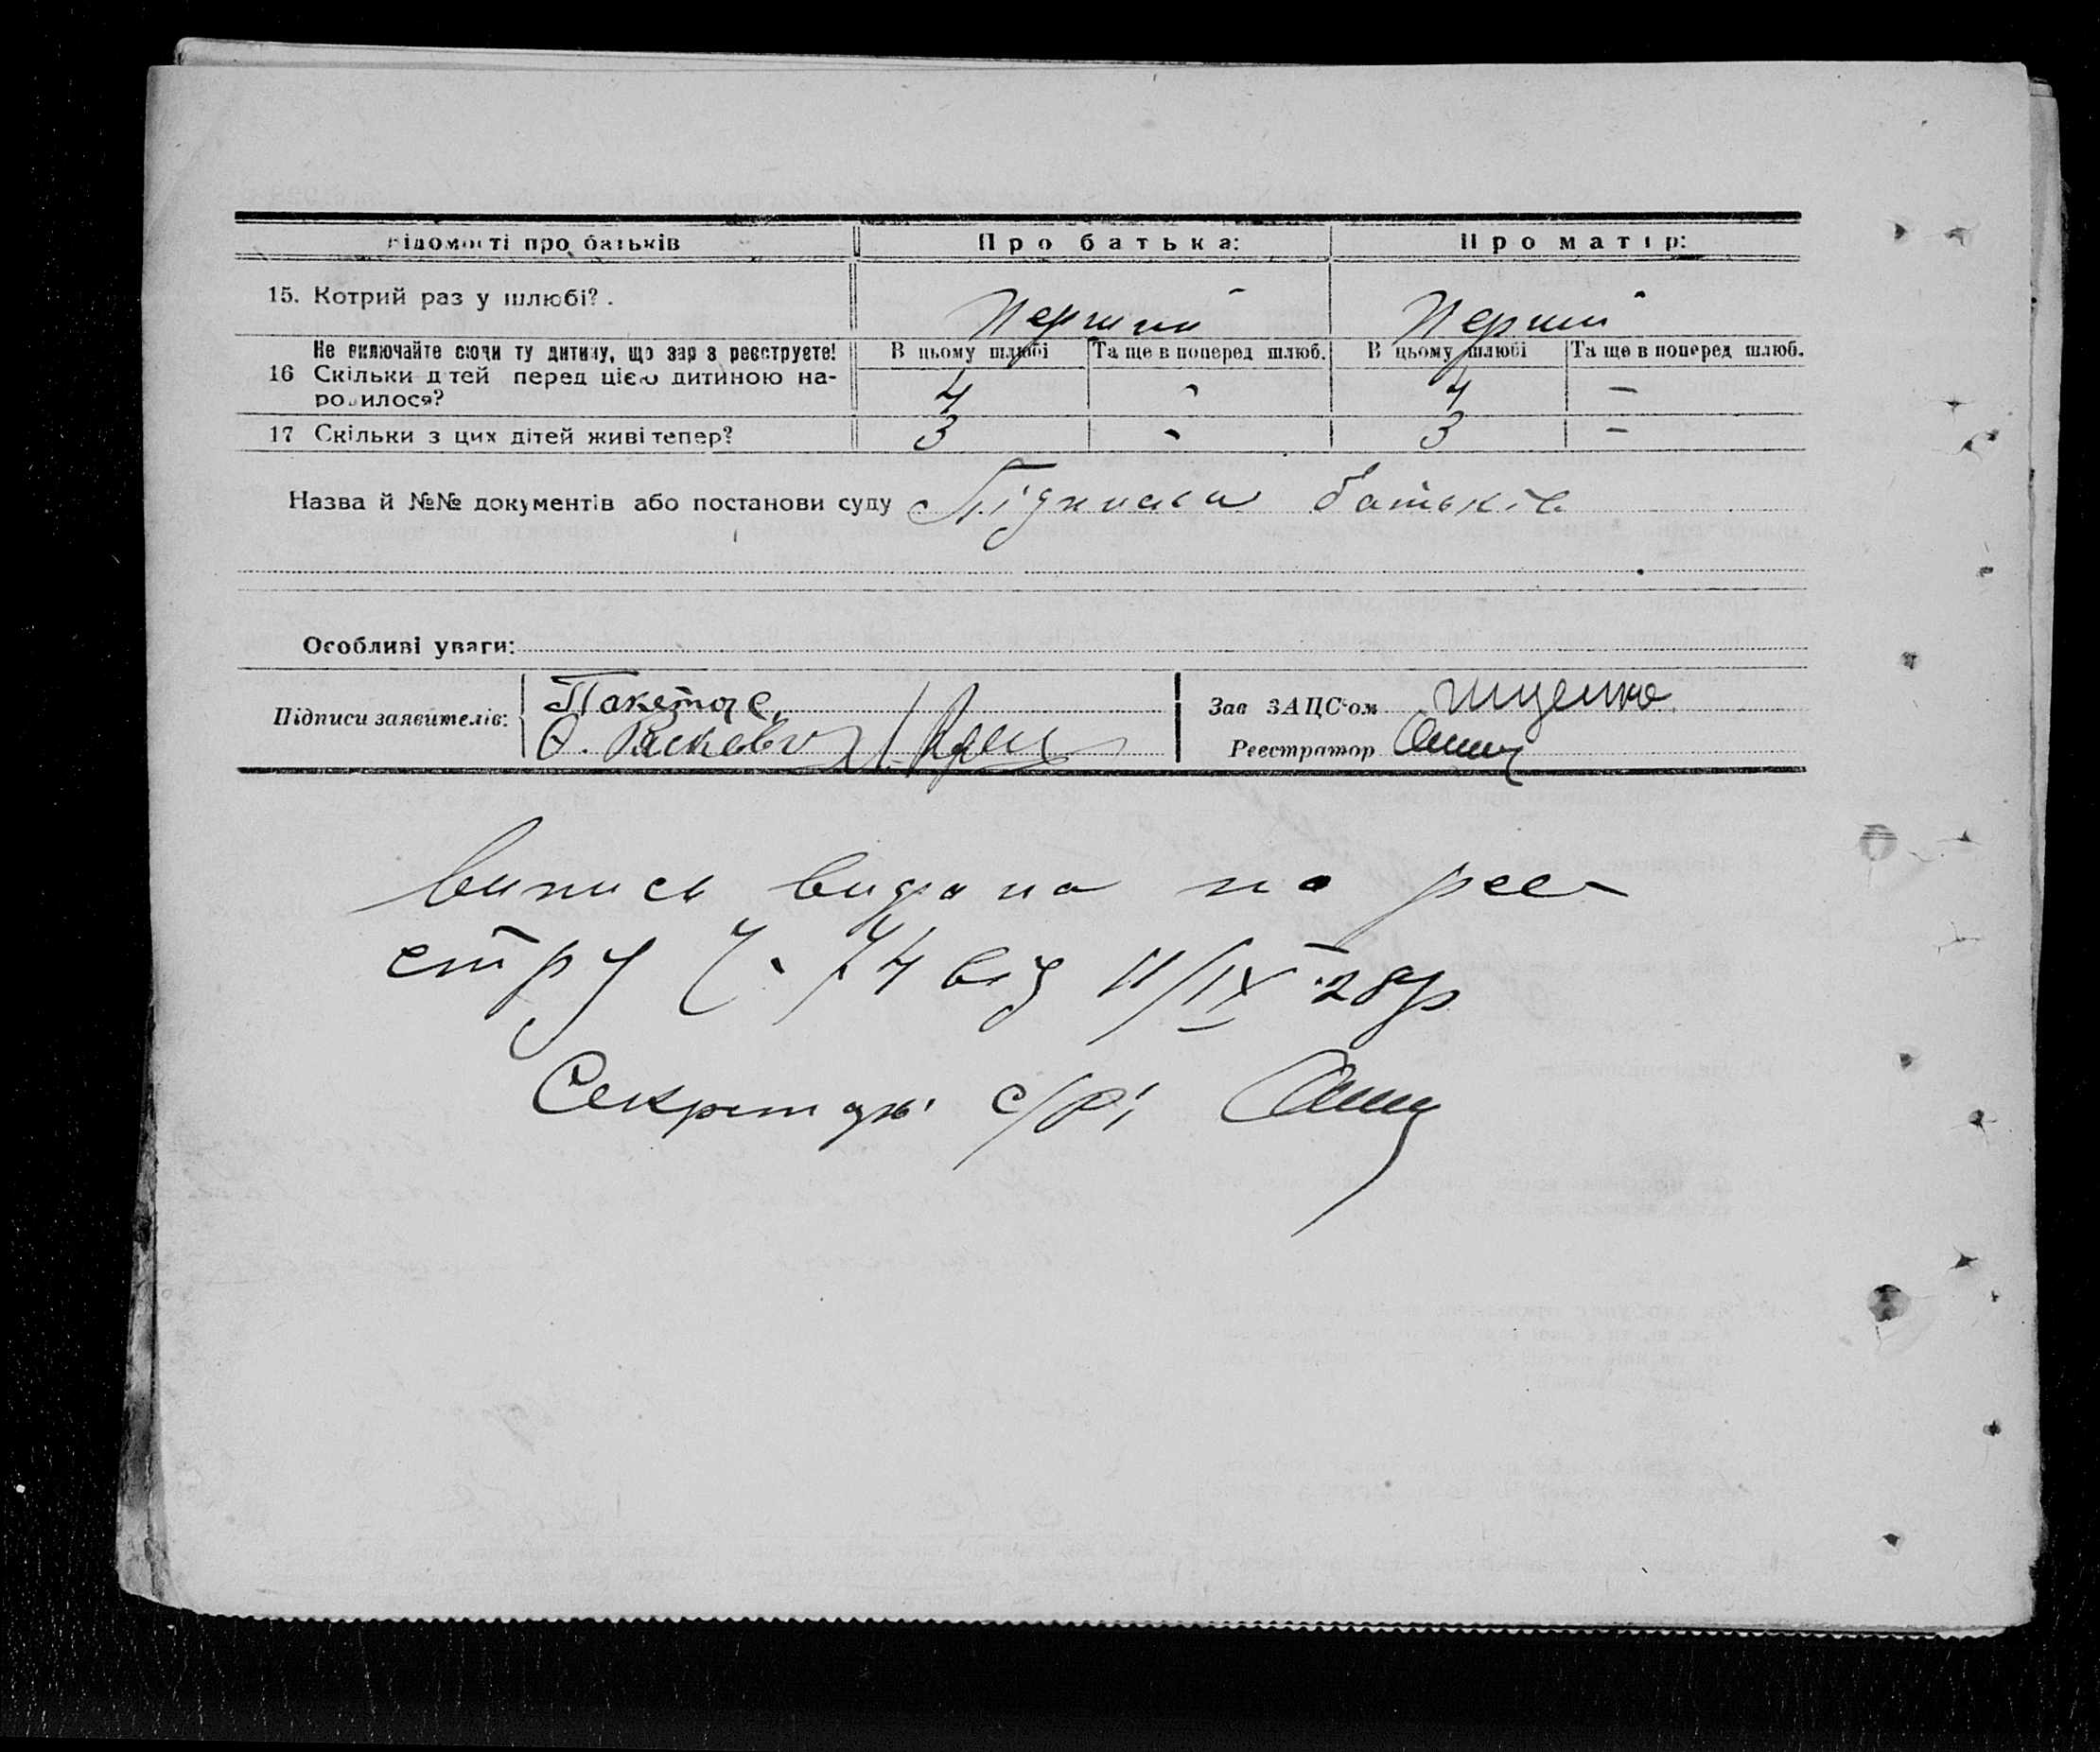 Відомості про батьків Про батька: Про матір:
15. Котрий раз у шлюбі?. Перший Перший
Не включайте сюди ту дитину, що зараз реєструєте! В цьому шлюбі Та ще в поперед шлюб. В цьому шлюбі Та ще в поперед шлюб.
16 Скільки дітей перед цією дитиною на- 4 - 4 -
родилося?
17 Скільки з цих дітей живі тепер? 3 - 3 -
Назва й №№ документів або постанови суду Підписка батьків
Особливі уваги:
Підписи заявителів: Зав ЗАЦС'ом Іщенко
Реєстратор
Випись видана по реє-
стру Ч. 74 від 11/IX 28 р
Секретарь с/Р.